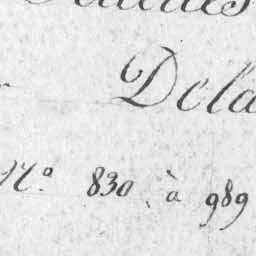 Déla
N° 830 à 989